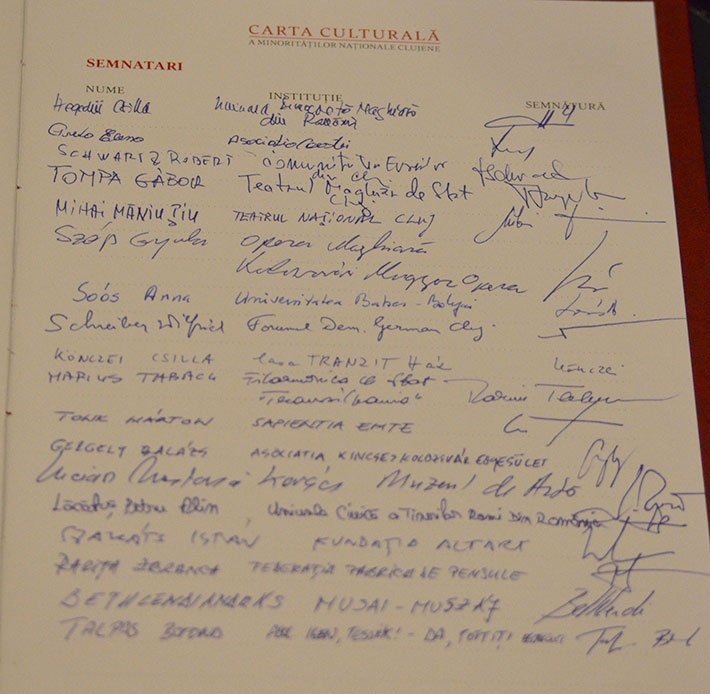 CARTA CULTURALĂ
A MINORITĂȚILOR NAȚIONALE CLUJENE
SEMNATARI
NUME INSTITUȚIE SEMNĂTURĂ
Hegedüs Csilla Uniunea Democrată Maghiară
din România
Asociația
SCHWARTZ ROBERT Comunitatea Evreilor
din Cluj
TOMPA GÁBOR Teatrul Maghiar de Stat
Cluj
MIHAI MĂNIUȚIU TEATRUL NAȚIONAL CLUJ
Szép Gyula Opera Maghiară
Kolozsvári Magyar Opera
Soós Anna Universitatea Babes-Bolyai
Schreiber Wilfried Forumul Dem. German Cluj
KONCZEI CSILLA Casa TRANZIT Ház Könczei
MARIUS TABACU Filarmonica de Stat
"Transilvania"
TONK MÁRTON SAPIENTIA EMTE
GERGELY BALÁZS ASOCIATIA KINCSES KOLOZSVÁR EGYESÜLET
Lucian Nastasă Kovács Muzeul de Artă
Lăcătuș Petru Alin Uniunea Civică a Tinerilor Romi Din România
SZAKÁTS ISTVÁN FUNDAȚIA ALTART
FEDERAȚIA FABRICA DE PENSULE
BETHLENDI ANDRÁS MUSAI-MUSZÁJ
TALPAS BOTOND IGEN, TESSÉK! - DA, POFTIȚI